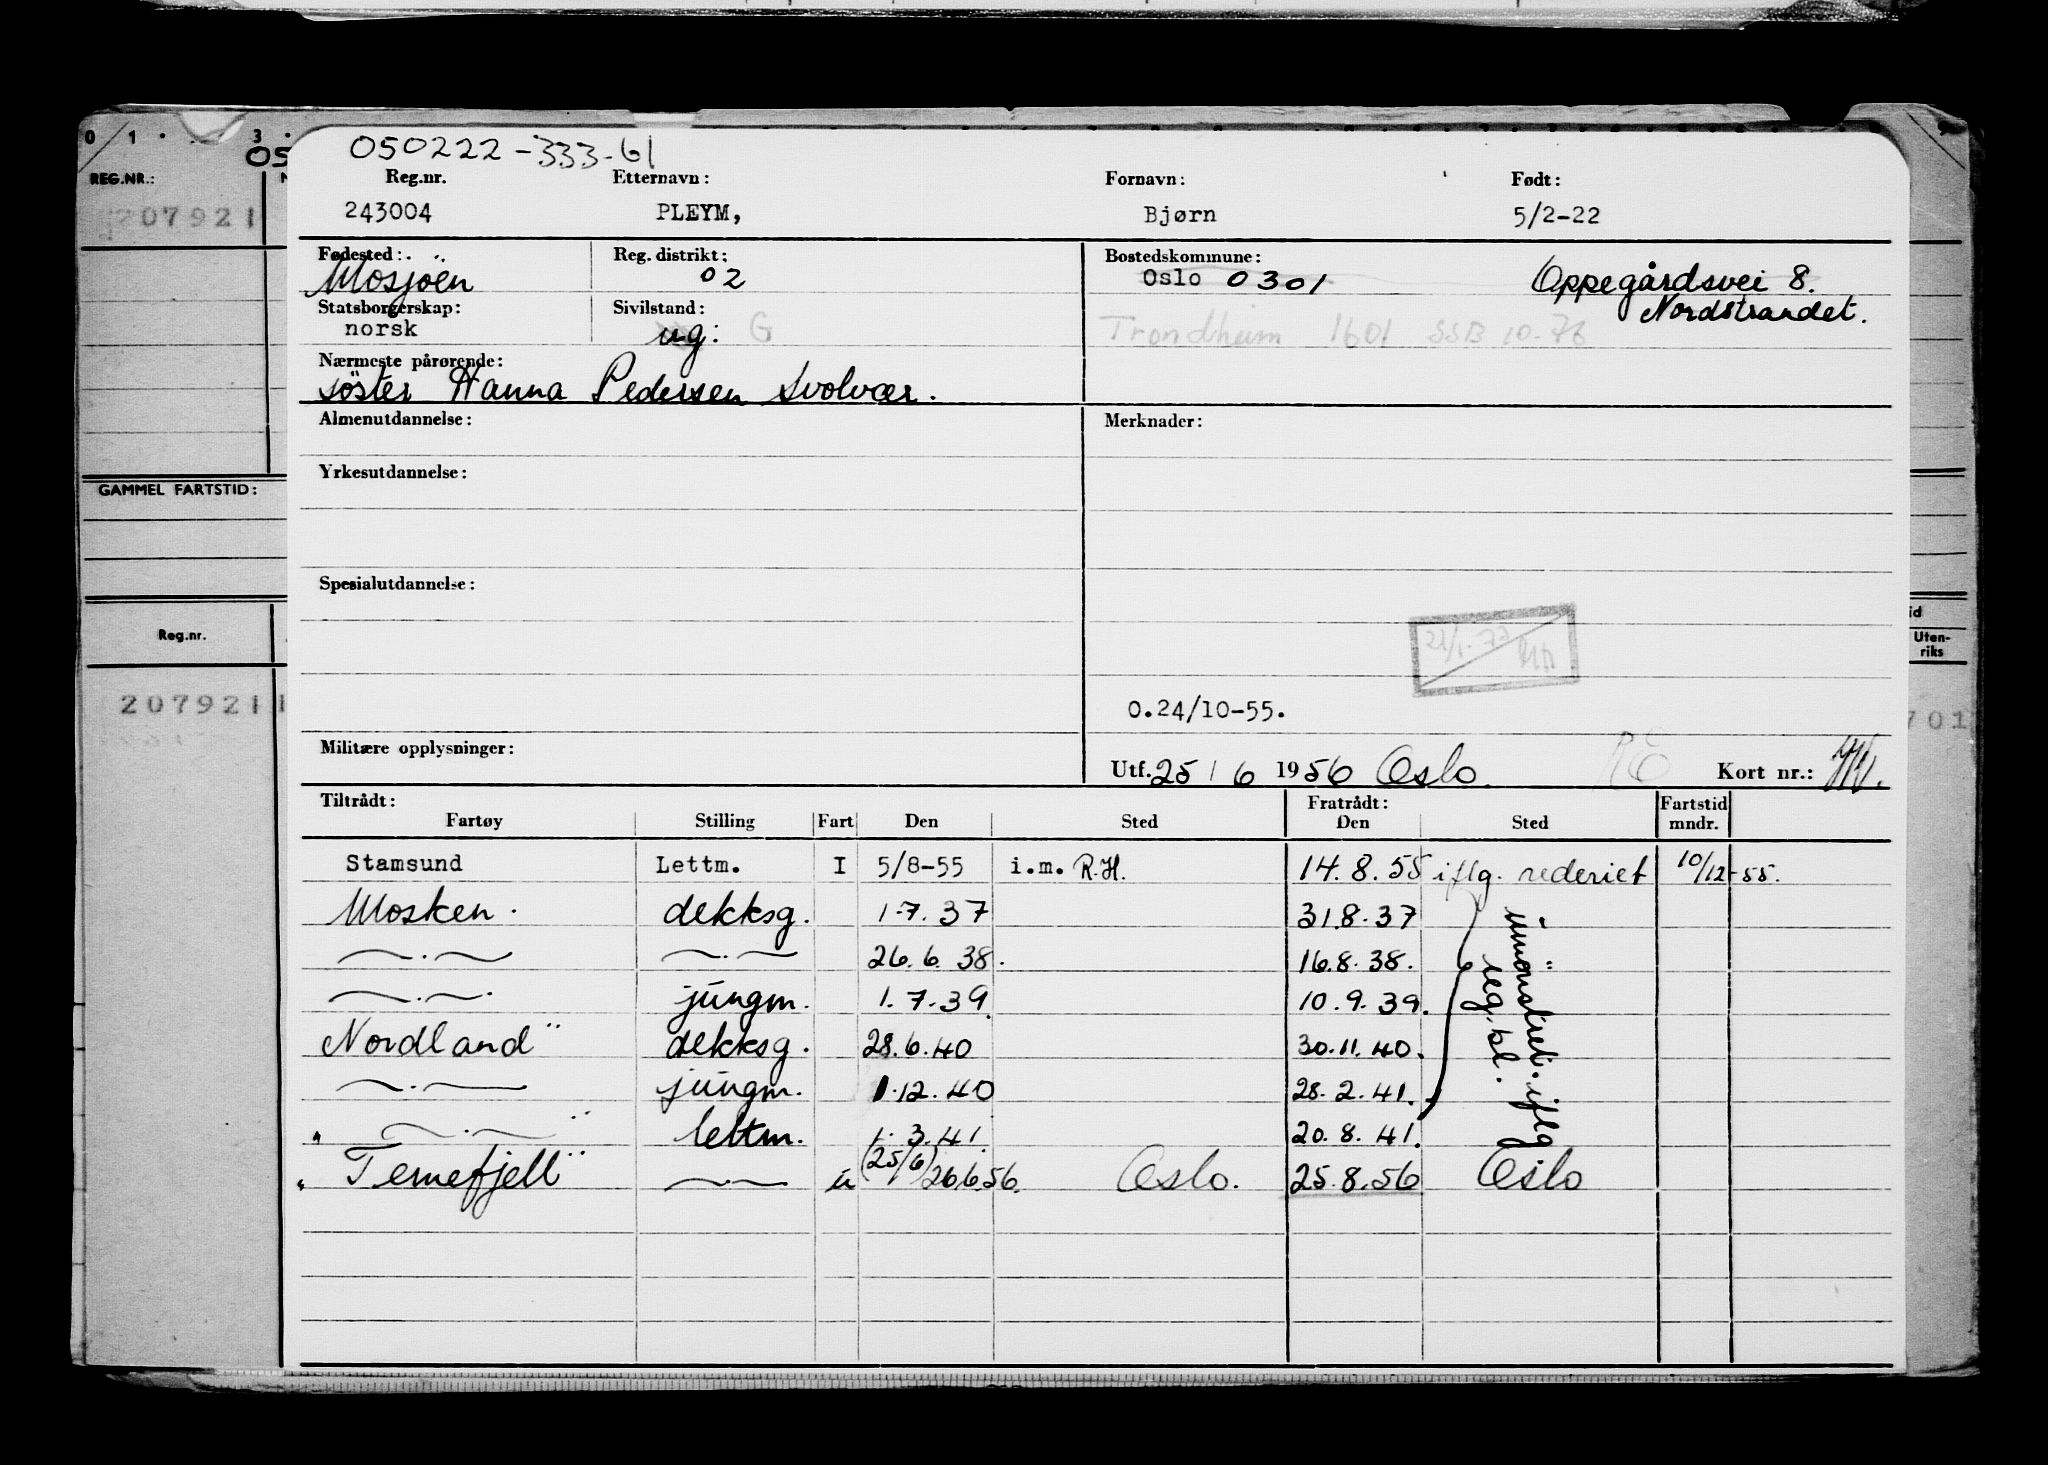 050222-333-61
0 1 3
05
REG.NR.:
207921
GAMMEL FARTSTID:
Reg.nr.
207921
Reg.nr. Etternavn: Fornavn: Født:
243004 PLEYM, Bjørn 5/2-22
Fødested: Reg. distrikt: Bostedskommune:
Mosjöen 02 Oslo 0301 Oppegårdsvei 8.
Statsborgerskap: Sivilstand: Nordstrandet.
norsk ug: G Trondheim 1601 SSB 10-76
Nærmeste pårørende:
söster Hanna Pedersen Svolvær.
Almenutdannelse: Merknader:
Yrkesutdannelse:
Spesialutdannelse:
21/1-77
0.24/10-55.
Militære opplysninger:
Utf. 25/6 1956 Oslo. RE Kort nr.:
Tiltrådt: Fratrådt: Fartstid
Fartøy Stilling Fart Den Sted Den Sted mndr.
Stamsund Lettm. I 5/8-55 i.m. R.H. 14.8.55 iflg. rederiet 10/12-55.
Mosken. dekksg. 1.7.37 31.8.37
—.— —.— 26.6.38. 16.8.38.
—.— jungm. 1.7.39. 10.9.39.
Nordland" dekksg. 28.6.40 30.11.40.
—.— jungm. 1.12.40 28.2.41.
" —.— " lettm. 1.3.41. 20.8.41.
"Ternefjell" —.— u (25/6) 26.6.56. Oslo. 25.8.56 Oslo
mønstret. iflg
reg. bl.
id
Uten-
riks
701